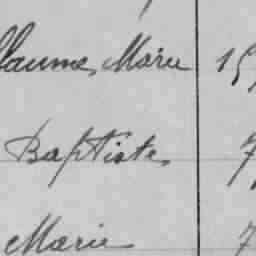 llaume Marie 15
Baptiste 7
Marie 7